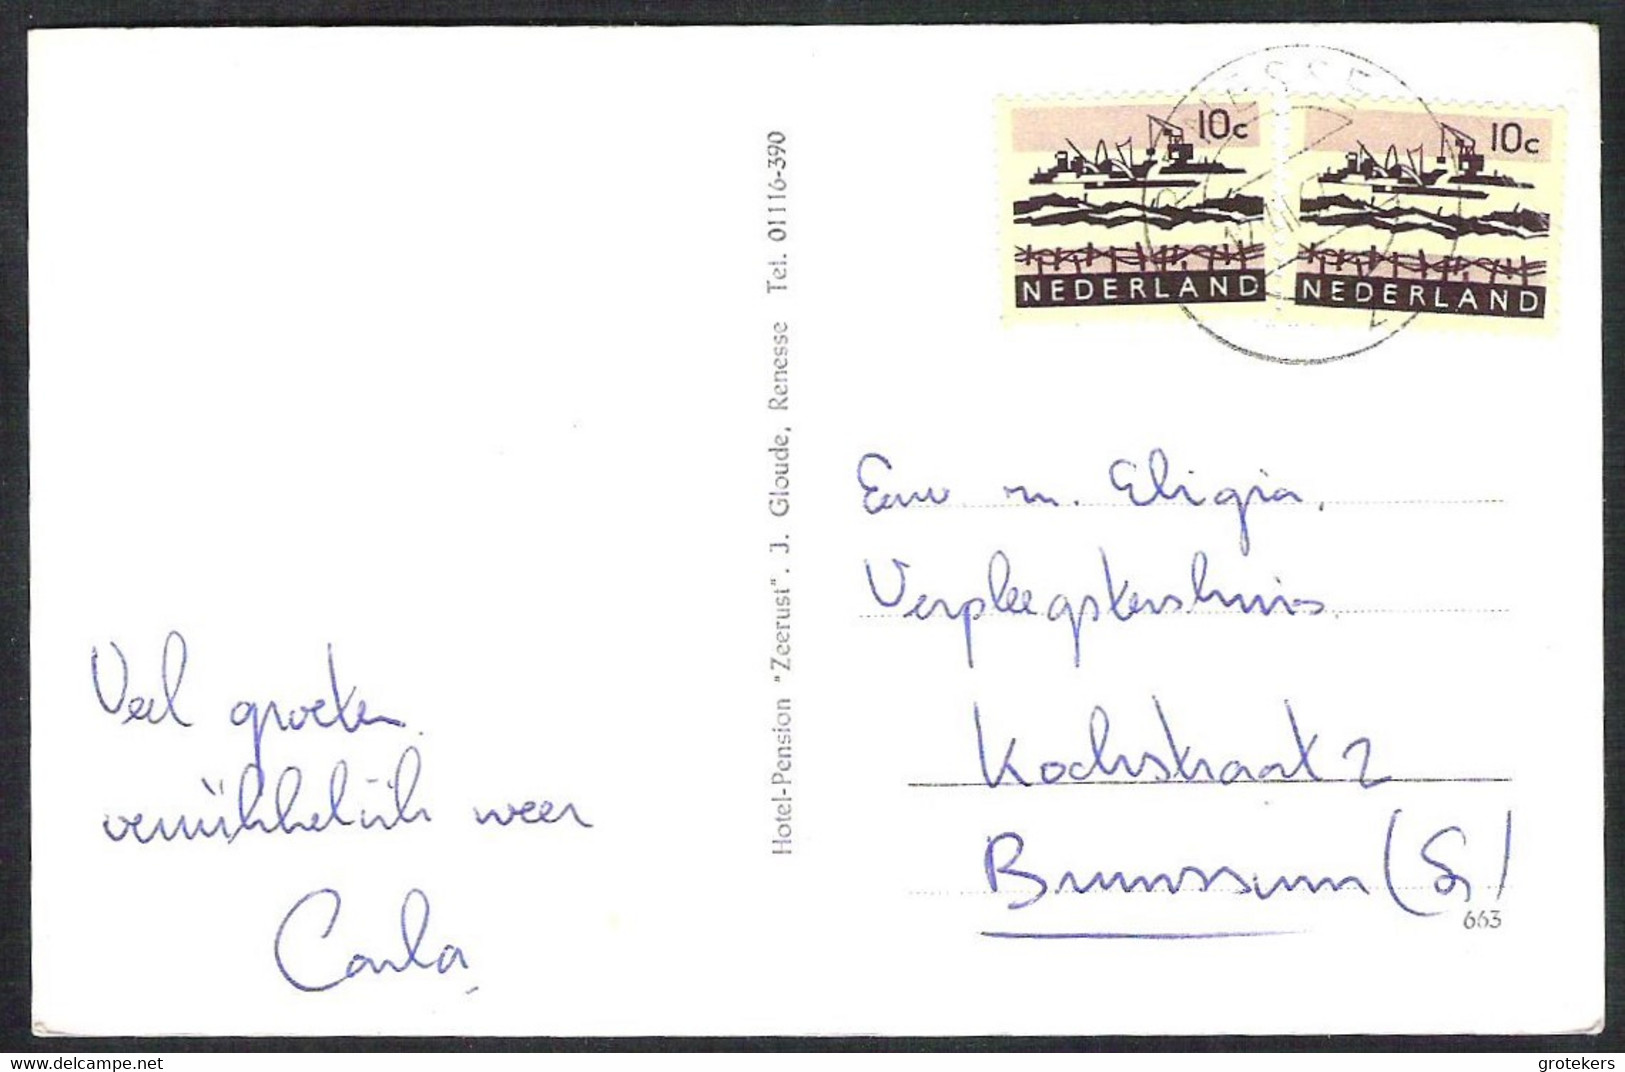 RENESSE
10c
10c
NEDERLAND
NEDERLAND
Hotel-Pension "Zeerust". J. Gloude, Renesse Tel. 01116-390
Eerw m. Eligia,
Verpleegstershuis
Kochstraat 2
Brunssum (L)
663
Veel groeten
verrükkelük weer
Carla
grotekers